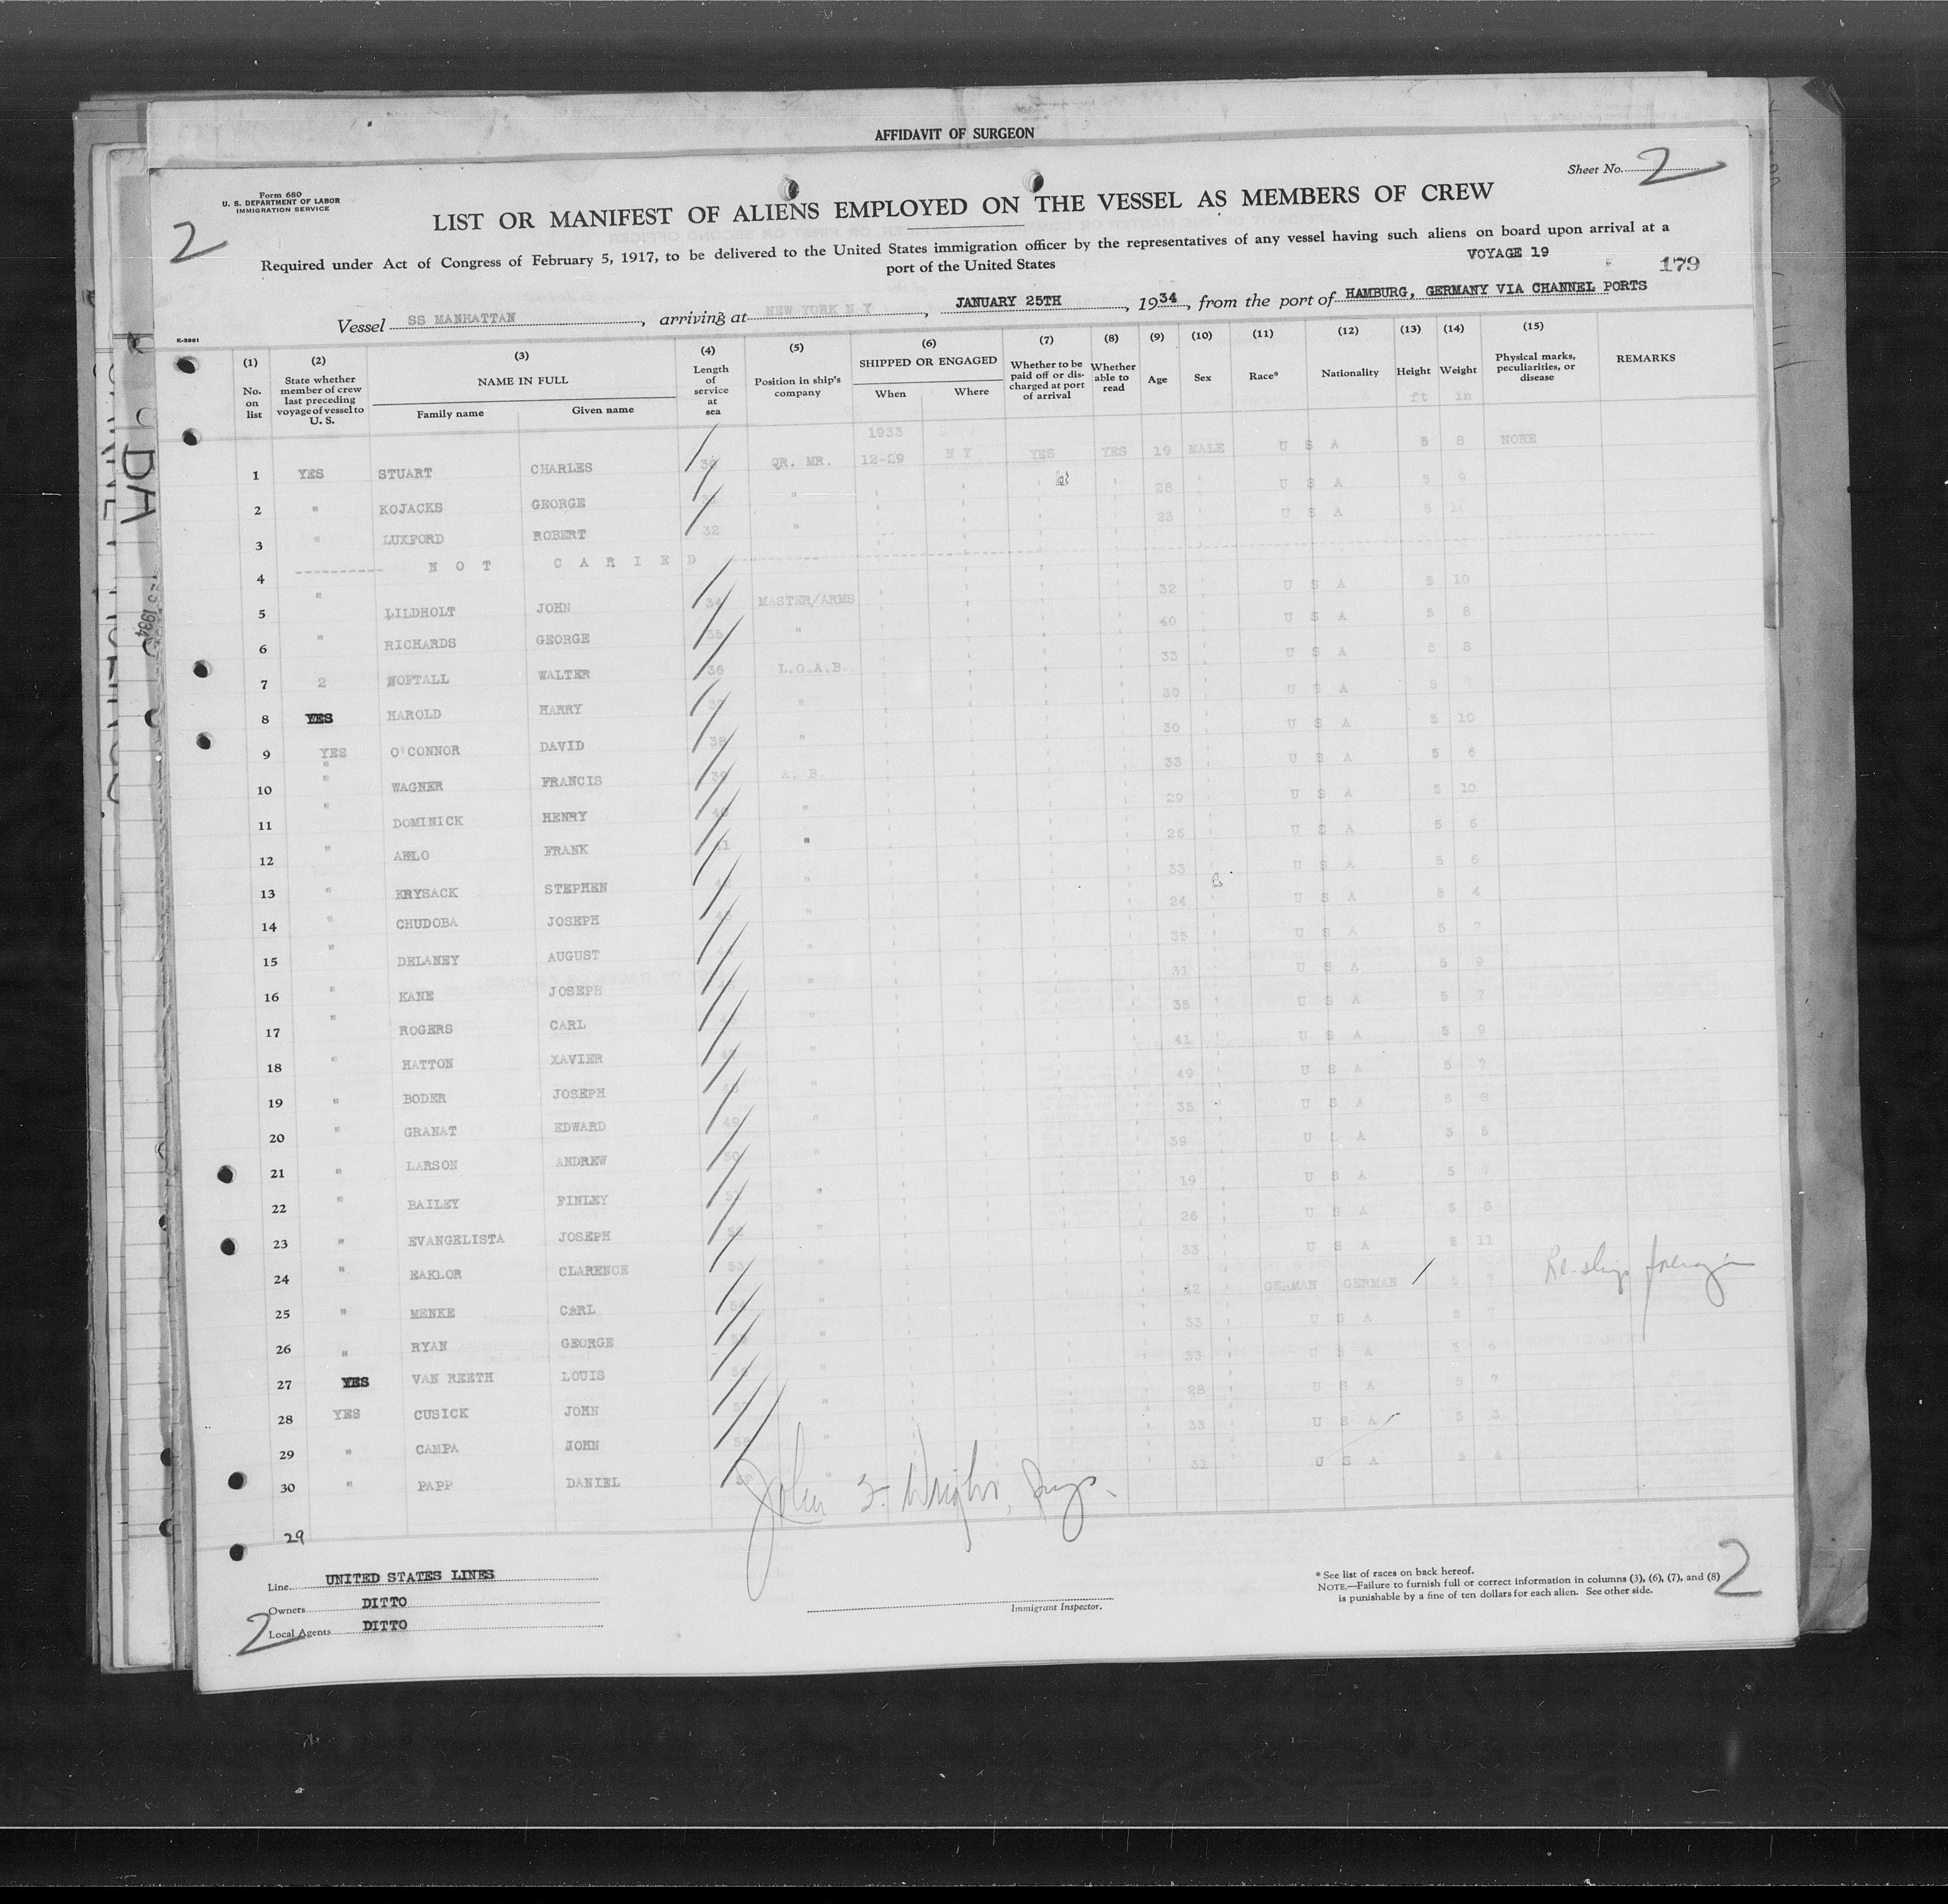 AFFIDAVIT OF SURGEON
Sheet No. 2
Form 680
U. S. DEPARTMENT OF LABOR
IMMIGRATION SERVICE
2
LIST OR MANIFEST OF ALIENS EMPLOYED ON THE VESSEL AS MEMBERS OF CREW
Required under Act of Congress of February 5, 1917, to be delivered to the United States immigration officer by the representatives of any vessel having such aliens on board upon arrival at a
port of the United States
VOYAGE 19
179
Vessel SS MANHATTAN, arriving at NEW YORK N Y, JANUARY 25TH, 1934, from the port of HAMBURG, GERMANY VIA CHANNEL PORTS
(1) No. on list
(2) State whether member of crew last preceding voyage of vessel to U. S.
(3) NAME IN FULL Family name Given name
(4) Length of service at sea
(5) Position in ship's company
(6) SHIPPED OR ENGAGED When Where
(7) Whether to be paid off or discharged at port of arrival
(8) Whether able to read
(9) Age
(10) Sex
(11) Race*
(12) Nationality
(13) Height ft
(14) Weight in
(15) Physical marks, peculiarities, or disease
REMARKS
1933
1 YES STUART CHARLES QR. MR. 12-29 N Y YES YES 19 MALE U S A 5 8 NONE
2 " KOJACKS GEORGE " 28 U S A 5 9
3 " LUXFORD ROBERT 32 " 23 U S A 5 10
4 N O T C A R I E D
5 " LILDHOLT JOHN 34 MASTER/ARMS 32 U S A 5 10
6 " RICHARDS GEORGE 35 " 40 U S A 5 8
7 2 NOFTALL WALTER 36 L.O.A.B. 33 U S A 5 8
8 YES HAROLD HARRY " 30 U S A 5
9 YES O'CONNOR DAVID 38 " 30 U S A 5 10
10 " WAGNER FRANCIS 39 A. B. 33 U S A 5 6
11 " DOMINICK HENRY " 29 U S A 5 10
12 " AHLO FRANK 41 " 25 U S A 5 6
13 " KRYSACK STEPHEN " 33 U S A 5 6
14 " CHUDOBA JOSEPH " 24 U S A 5 4
15 " DELANEY AUGUST 35 U S A 5 7
16 " KANE JOSEPH " 31 U S A 5 9
17 " ROGERS CARL 35 U S A 5 7
18 " HATTON XAVIER " 41 U S A 5 9
19 " BODER JOSEPH " 49 U S A 5 7
20 " GRANAT EDWARD 49 " 35 U S A 5 8
21 " LARSON ANDREW 50 " 39 U S A 5 5
22 " BAILEY FINLEY " 19 U S A 5
23 " EVANGELISTA JOSEPH 52 " 26 U S A 5 8
24 " EAKLOR CLARENCE 53 " 33 U S A 5 11
25 " MENKE CARL " 42 GERMAN GERMAN 5 7
26 " RYAN GEORGE " 33 U S A 5 7
27 YES VAN REETH LOUIS " 33 U S A 5 6
28 YES CUSICK JOHN " 28 U S A 5 7
29 " CAMPA JOHN 58 " 33 U S A 5 3
30 " PAPP DANIEL " 31 U S A 5 4
29
John F. Wright, Insp.
Line UNITED STATES LINES
Owners DITTO
Local Agents DITTO
2
Immigrant Inspector.
* See list of races on back hereof.
NOTE.—Failure to furnish full or correct information in columns (3), (6), (7), and (8)
is punishable by a fine of ten dollars for each alien. See other side.
2